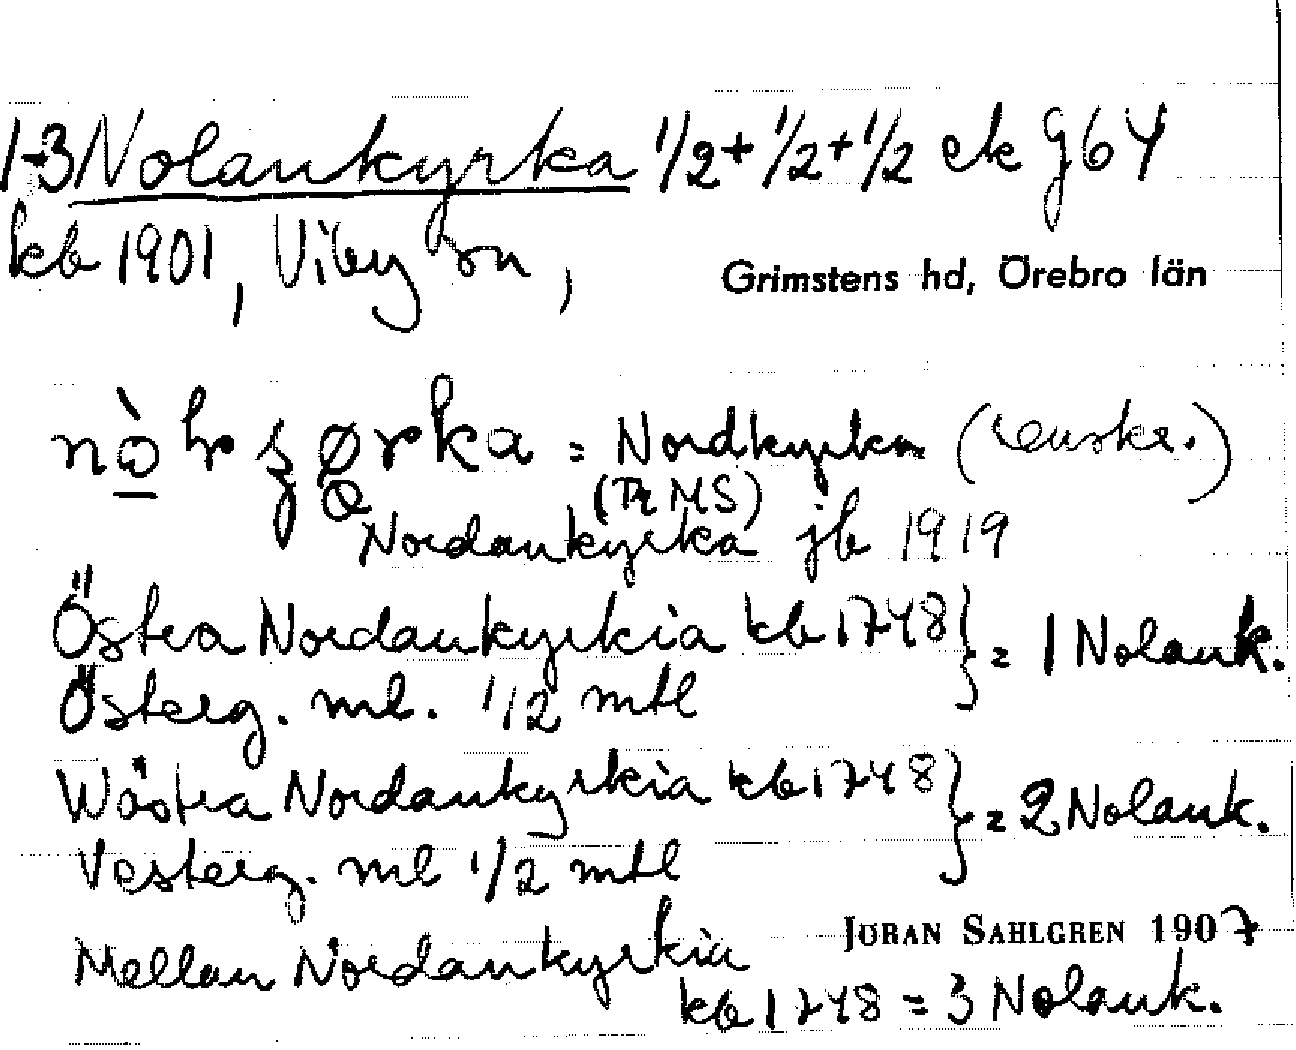 1-3 Nolankyrka 1/2+1/2+1/2 ek G64
kb 1901, Viby sn,
Grimstens hd, Örebro län
= Nordkyrka
(Tr MS)
Nordankyrka jb 1919
Östra Nordankyrkia kb 1748 } = 1 Nolank.
Österg. ml. 1/2 mtl
Wästra Nordankyrkia kb 1748 } = 2 Nolank.
Vesterg. ml 1/2 mtl
JÖRAN SAHLGREN 1907
Mellan Nordankyrkia
kb 1748 = 3 Nolank.